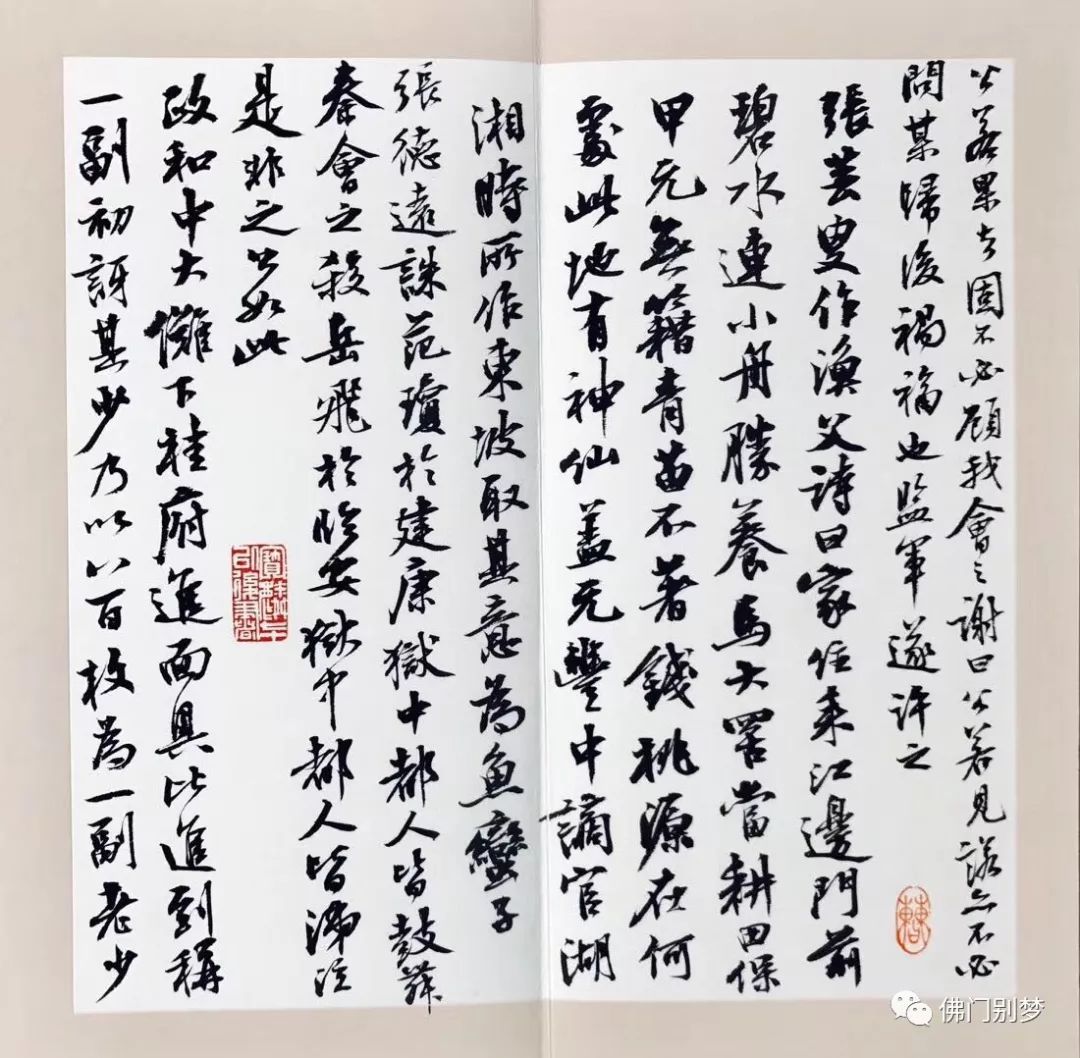 公若果去固不必顧我會之謝曰公若見諾亦不必
問某歸後禍福也監軍遂許之
張芸叟作漁父詩曰家住耒江邊門前
碧水連小舟勝養馬大罟當耕田保
甲元無籍青苗不著錢桃源在何
處此地有神仙蓋元豐中謫官湖
湘時所作東坡取其意為魚蠻子
張德遠誅范瓊於建康獄中都人皆鼓舞
秦會之殺岳飛於臨安獄中都人皆涕泣
是非之公如此
政和中大儺下桂府進面具比進到稱
一副初訝其少乃以八百枚為一副老少
佛门别梦